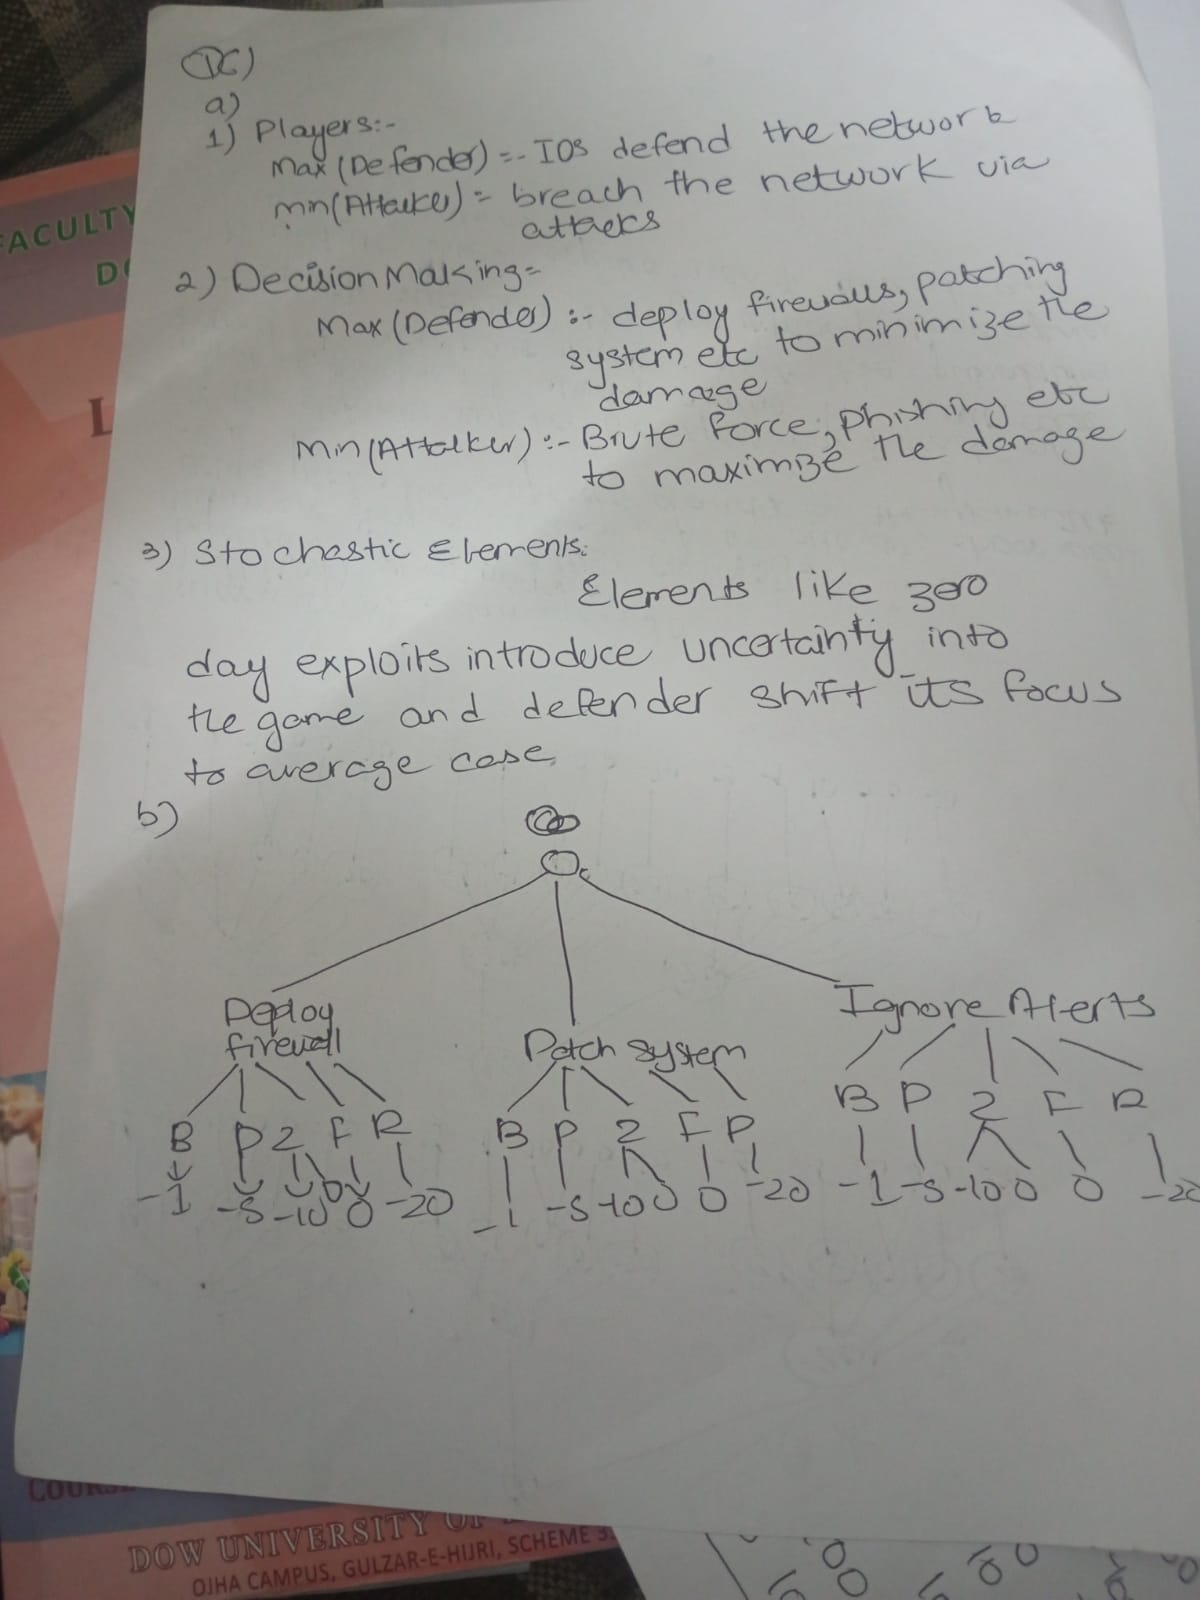 Q6)
a)
1) Players:-
Max (Defender) :- IOS defend the network
min (Attacker) = breach the network via
attacks
2) Decision Making =
Max (Defender) :- deploy firewalls, patching
system etc to minimize the
damage
Min (Attacker) :- Brute force, phishing etc
to maximize the damage
3) Stochastic Elements:
Elements like zero
day exploits introduce uncertainty into
the game and defender shift its focus
to average case.
b)
Deploy firewall
Patch System
Ignore Alerts
B P Z F R
B P Z F R
B P Z F R
-1 -5 -10 0 0 -20
-1 -5 -10 0 0 -20
-1 -5 -10 0 0 -20
FACULTY
L
DOW UNIVERSITY OF
OJHA CAMPUS, GULZAR-E-HIJRI, SCHEME 3